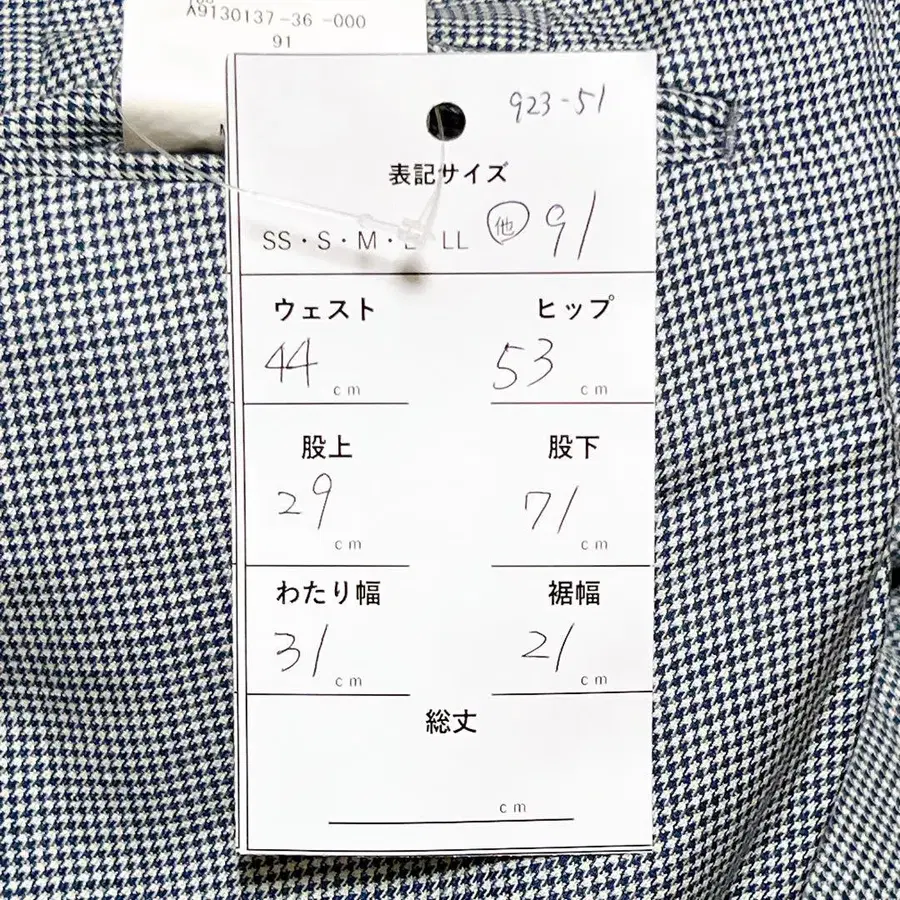 A9130137-36-000
91
923-51
表記サイズ
SS・S・M・L LL 他 91
ウェスト ヒップ
44 cm 53 cm
股上 股下
29 cm 71 cm
わたり幅 裾幅
31 cm 21 cm
総丈
cm